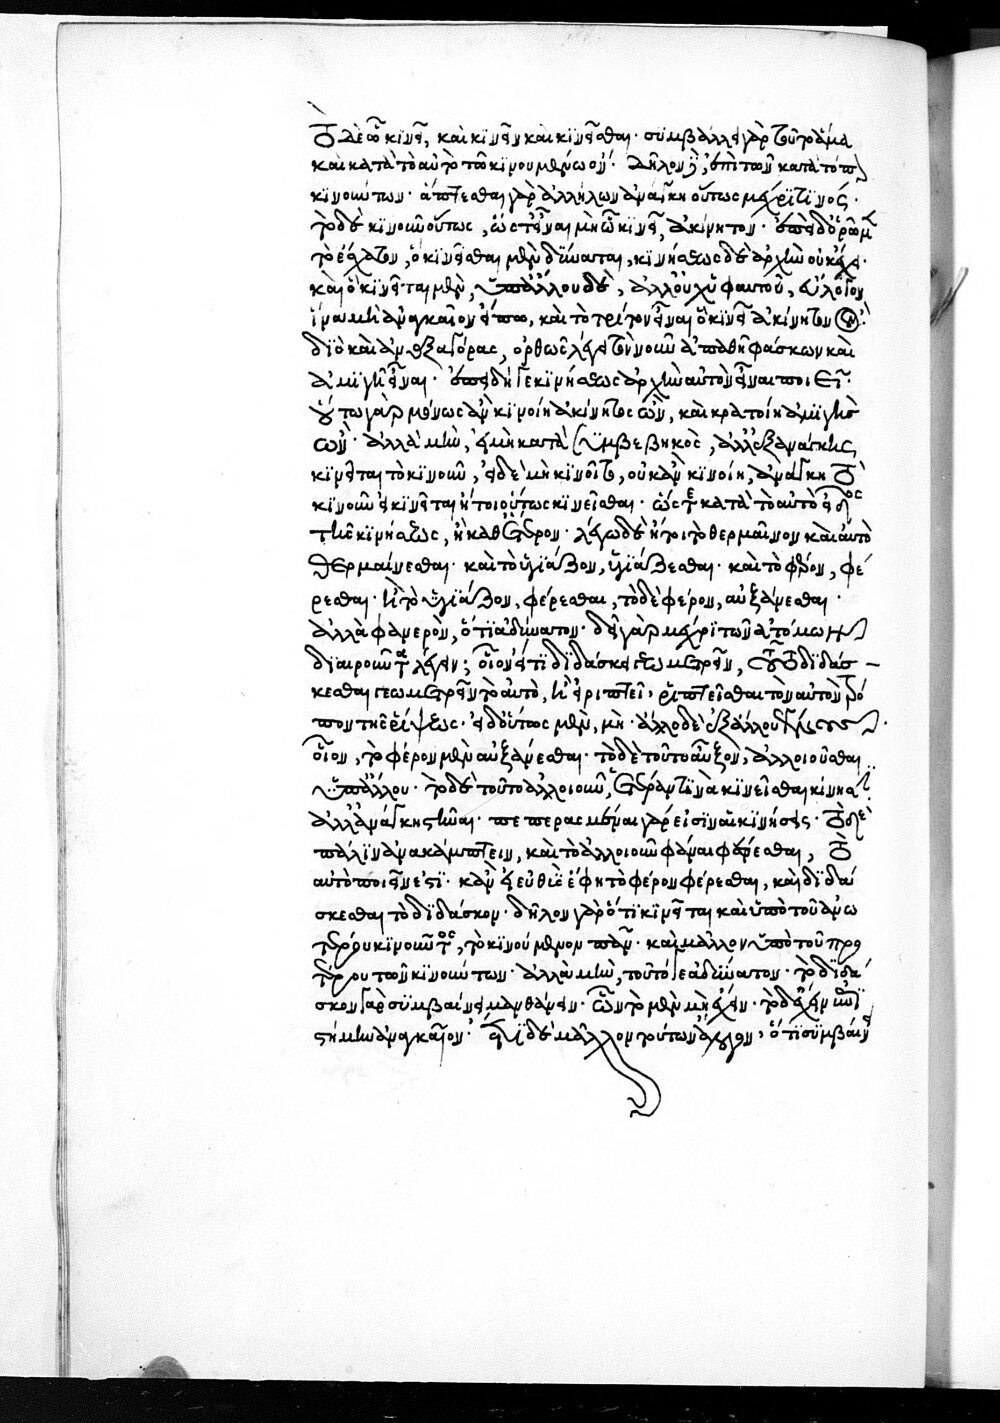 Τὸ δὲ ὧ κινεῖ, καὶ κινεῖν καὶ κινεῖσθαι· συμβάλλει γὰρ τοῦτο ἅμα
καὶ κατὰ τὸ αὐτὸ τῶ κινουμένω ὄν· δῆλον δὲ, ἐπὶ τῶν κατὰ τόπον
κινούντων· ἅπτεσθαι γὰρ ἀλλήλων ἀνάγκη οὕτως μέχρι τινός·
τὸ δὲ κινοῦν οὕτως, ὥστ' εἶναι μὴ ὧ κινεῖ, ἀκίνητον· ἐπεὶ δ' ὁρῶμεν
τὸ ἔσχατον, ὃ κινεῖσθαι μὲν δύναται, κινήσεως δὲ ἀρχὴν οὐκ ἔχει·
καὶ ὃ κινεῖται μὲν, ὑπ' ἄλλου δὲ, ἀλλ' οὐχ ὑφ' αυτοῦ, εὔλογον
ἵνα μὴ ἀναγκαῖον εἴπω, καὶ τὸ τρίτον εἶναι ὃ κινεῖ ἀκίνητον ὄν:
διὸ καὶ ἀναξαγόρας, ὀρθῶς λέγει τὸν νοῦν ἀπαθῆ φάσκων καὶ
ἀμιγῆ εἶναι· ἐπειδή γε κινήσεως ἀρχὴν αὐτὸν εἶναι ποιεῖ·
οὕτω γὰρ μόνως ἂν κινοίη ἀκίνητος ὢν, καὶ κρατοίη ἀμιγὴς
ὤν· ἀλλὰ μὴν, εἰ μὴ κατὰ συμβεβηκὸς, ἀλλ' ἐξ ἀνάγκης
κινεῖται τὸ κινοῦν, εἰ δὲ μὴ κινοῖτο, οὐκ ἂν κινοίη, ἀνάγκη τὸ
κινοῦν εἰ κινεῖται ἤτοι οὕτως κινεῖσθαι· ὥς τε κατὰ τὸ αὐτὸ εἶδος
τῆς κινήσεως, ἢ καθ' ἕτερον· λέγω δὲ ἤτοι τὸ θερμαῖνον καὶ αὐτὸ
θερμαίνεσθαι· καὶ τὸ ὑγιάζον, ὑγιάζεσθαι· καὶ τὸ φέρον, φέ
ρεσθαι· ἢ τὸ ὑγιάζον, φέρεσθαι, τὸ δὲ φέρον, αὐξάνεσθαι·
ἀλλὰ φανερὸν, ὅτι ἀδύνατον· δεῖ γὰρ μέχρι τῶν ἀτόμων
διαιροῦντα λέγειν; οἷον εἴ τι διδάσκει γεωμετρεῖν, τοῦτο διδάσ
κεσθαι γεωμετρεῖν τὸ αὐτὸ, ἢ εἰ ῥιπτεῖ, ῥιπτεῖσθαι τὸν αὐτὸν τρό
πον τῆς ῥίψεως· εἰ δ' οὕτως μὲν, μὴ· ἄλλο δὲ ἐξ ἄλλου γένους·
οἷον, τὸ φέρον μὲν αὐξάνεσθαι· τὸ δὲ τοῦτο αὖξον, ἀλλοιοῦσθαι
ὑπ' ἄλλου· τὸ δὲ τοῦτο ἀλλοιοῦν, ἑτέραν τινὰ κινεῖσθαι κίνησιν·
ἀλλ' ἀνάγκη στῆναι· πεπερασμέναι γάρ εἰσιν αἱ κινήσεις· τὸ δὲ
πάλιν ἀνακάμπτειν, καὶ τὸ ἀλλοιοῦν φάναι φέρεσθαι, τὸ
αὐτὸ ποιεῖν ἐστί· κἂν εἰ εὐθὺς ἔφη τὸ φέρον φέρεσθαι, καὶ διδά
σκεσθαι τὸ διδάσκον· δῆλον γὰρ ὅτι κινεῖται καὶ ὑπὸ τοῦ ἀνω
τέρω κινοῦντος, τὸ κινούμενον πᾶν· καὶ μᾶλλον ὑπὸ τοῦ προ
τέρου τῶν κινούντων· ἀλλὰ μὴν, τοῦτό γε ἀδύνατον· τὸ διδά
σκον γὰρ συμβαίνει μανθάνειν· ὧν τὸ μὲν μὴ ἔχειν· τὸ δὲ ἔχειν ἐπι
στήμην ἀναγκαῖον· ἔτι δὲ μᾶλλον τούτων ἄλογον, ὅτι συμβαίνει